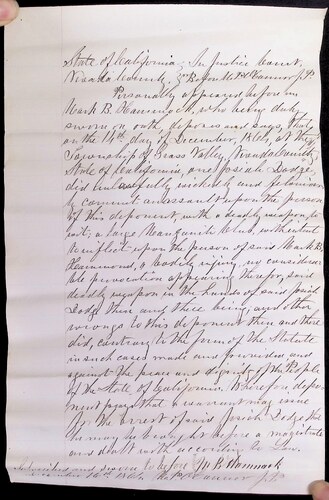 State of California, In Justice Court,
Nevada County. Before M. P. O'Connor J.P.
Personally appeared before me
Mark B. Hammock, who being duly
sworn on oath, deposes and says, that
on the 14th day of December, 1861, at the
Township of Grass Valley, Nevada County,
State of California, one Josiah Dodge,
did unlawfully wickedly and feloniously
commit an assault upon the person
of this deponent, with a deadly weapon, to
wit; a large Manzanita Club, with intent
to inflict upon the person of said Mark B.
Hammond, a bodily injury, no considera
ble provocation appearing therefor, said
deadly weapon in the hands of said Josiah
Dodge then and there being, and other
wrongs to this deponent then and there
did, contrary to the form of the Statute
in such cases made and provided and
against the peace and dignity of the People
of the State of California. Wherefore depo
nent prays that a warrant may issue
for the arrest of said Josiah Dodge that
he may be brought before a magistrate
and dealt with according to Law.
Subscribed and sworn to before M B Hammock
December 16th 1861 O'Connor J.P.